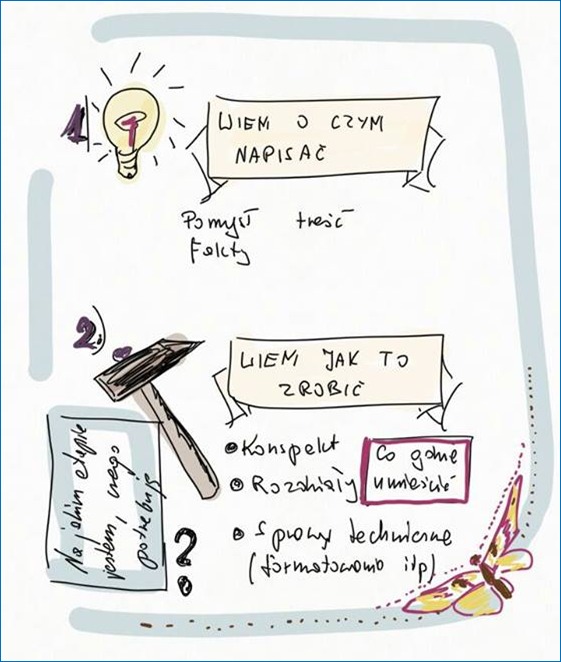 1
1
WIEM O CZYM
NAPISAĆ
Pomysł treść
Fakty
2)
WIEM JAK TO
ZROBIĆ
• Konspekt
• Rozdziały
Co gdzie
umieścić
• Sprawy techniczne
(formatowanie itp)
Na jakim etapie
jestem, czego
potrzebuję
?